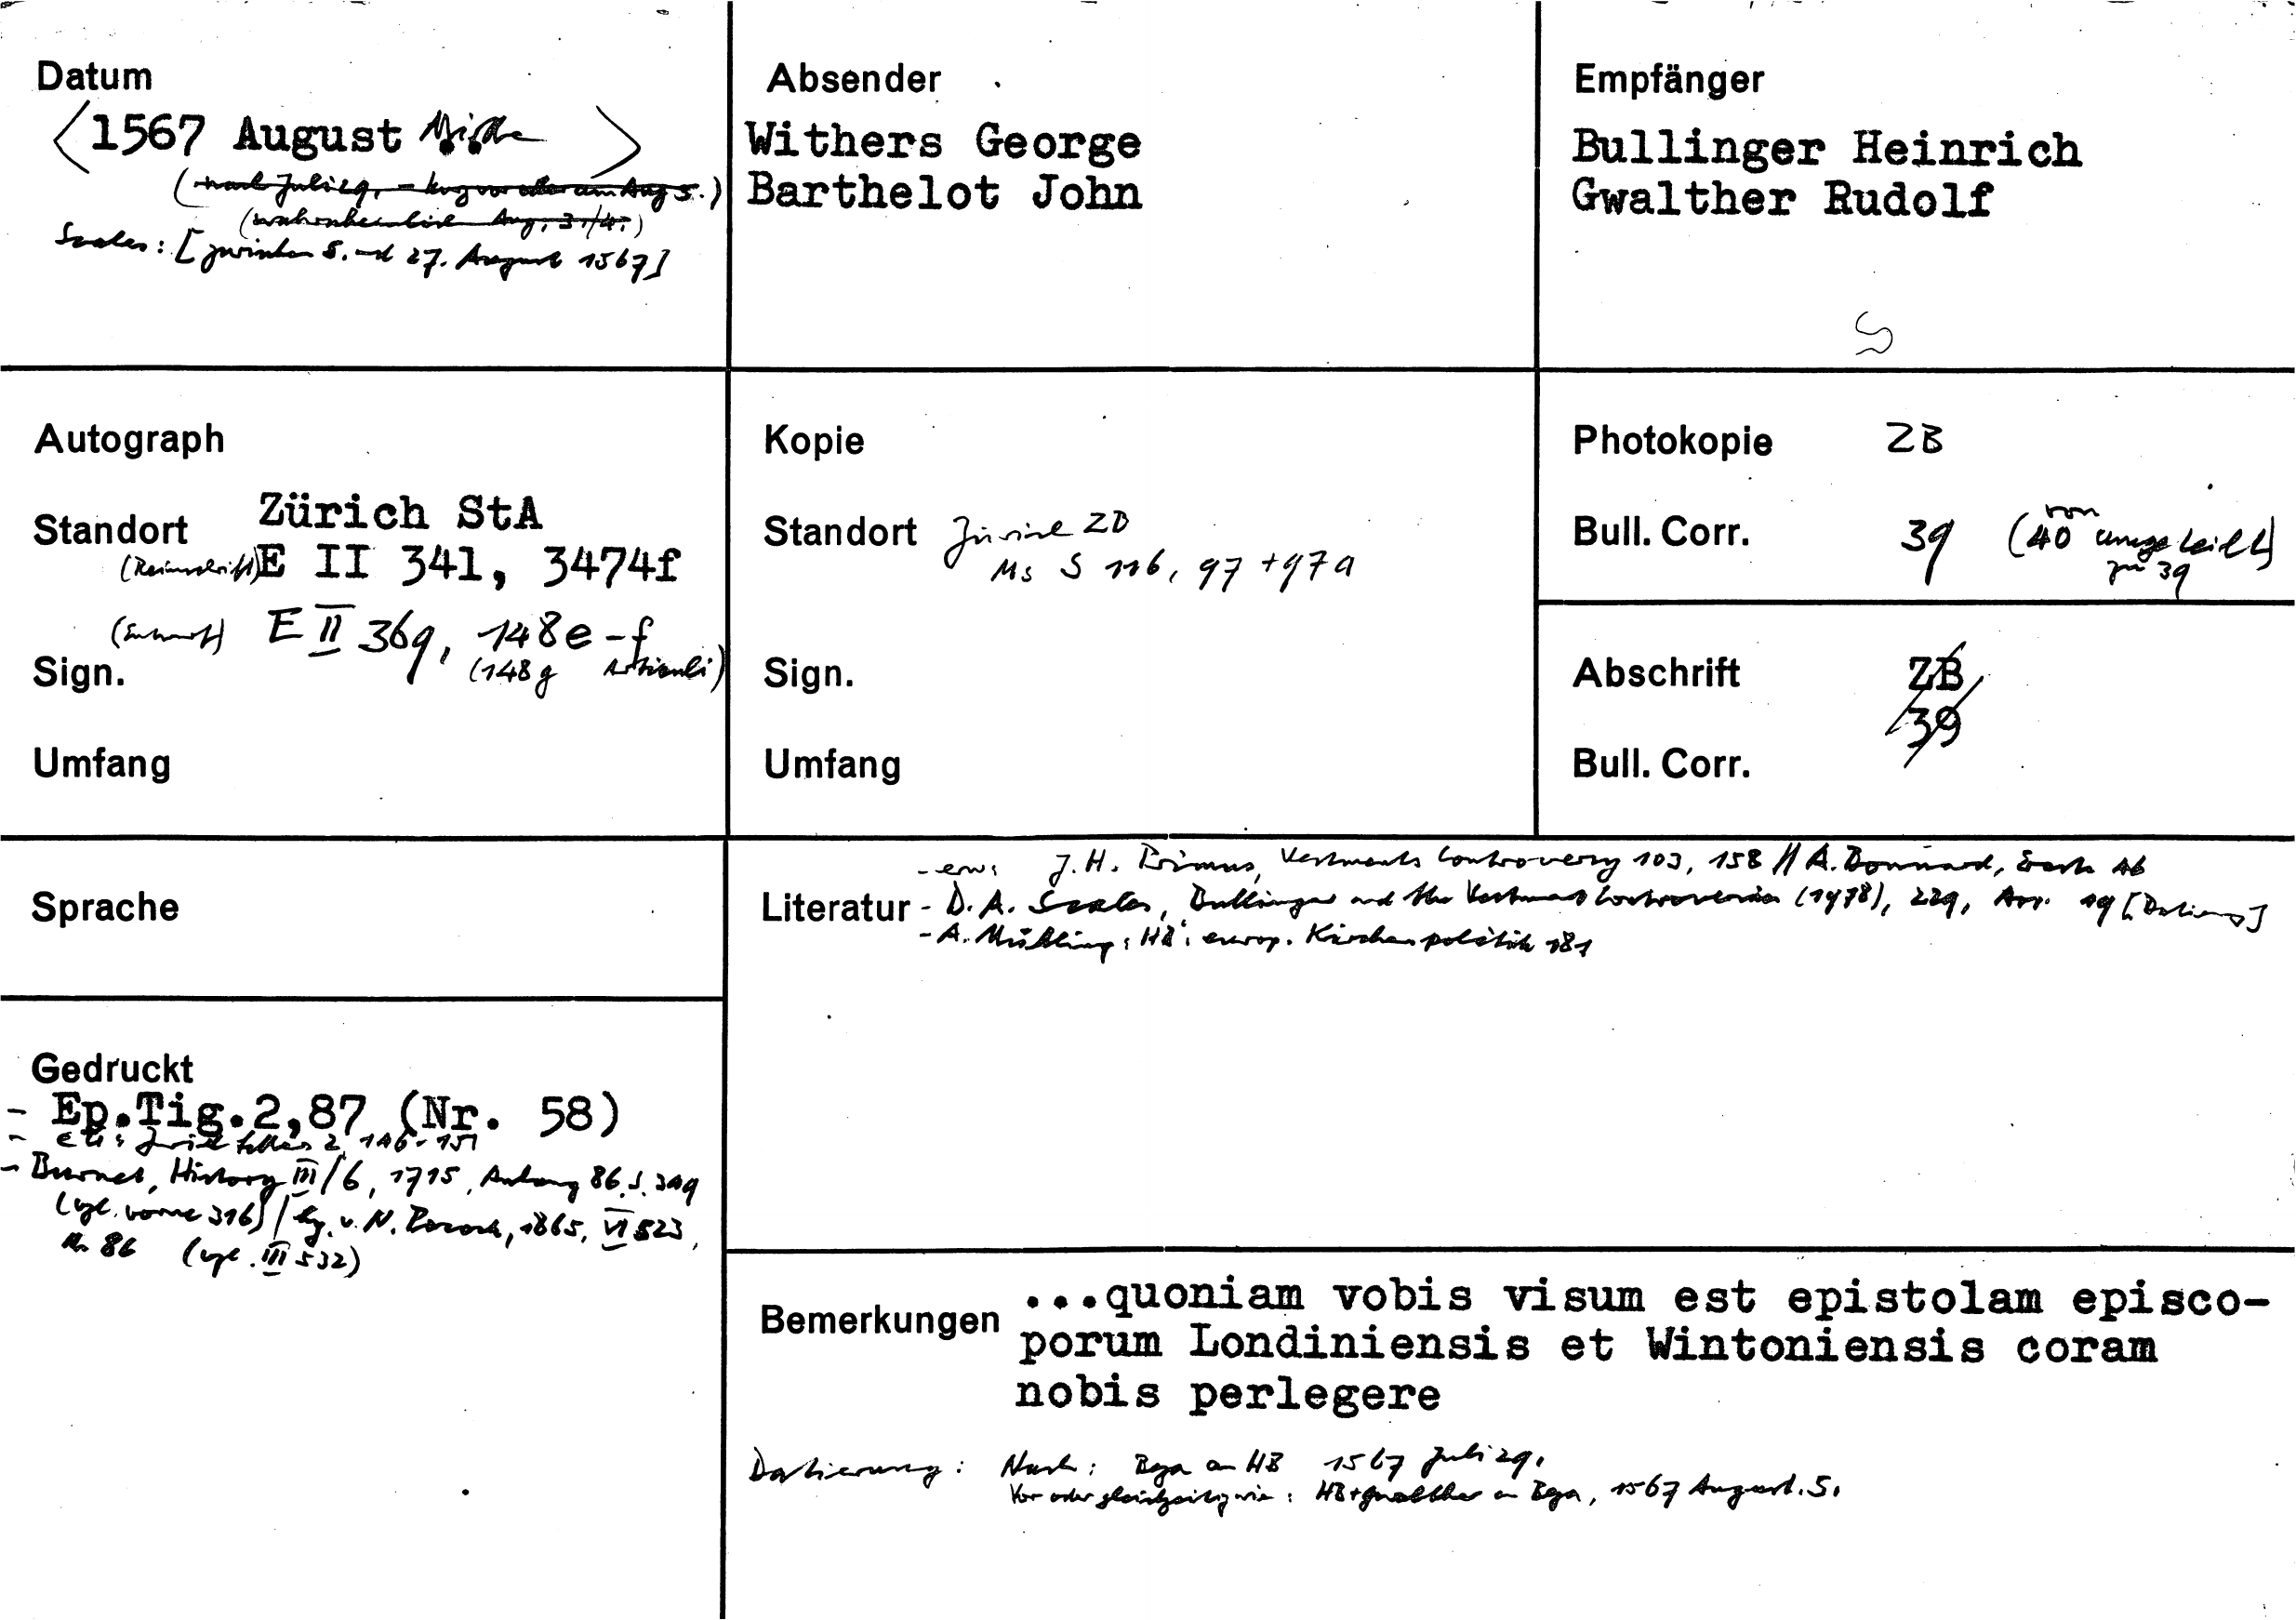 Datum
<1567 August Mitte >
(nach Juli 29, - kurz vor oder am Aug 5.)
(wahrscheinlich Aug. 3./4.)
Scales: [zwischen 5. und 27. August 1567]
Absender
Withers George
Barthelot John
Empfänger
Bullinger Heinrich
Gwalther Rudolf
S
Autograph
Standort Zürich StA
(Reinschrift) E II 341, 3474f
(Entwurf) E II 369, 148e-f
Sign. (148g Articuli)
Umfang
Kopie
Standort Zürich ZB
Ms S 116, 97 + 97a
Sign.
Umfang
Photokopie ZB
Bull. Corr. 39 (von 40 umgeteilt zu 39)
Abschrift ZB
39
Bull. Corr.
Sprache
Literatur - erw: J.H. Primus, Vestments Controversy 103, 158 // A. Bonnard, 46
- D.A. Scales, Bullinger and the Vestment Controversies (1978), 229, Anm. 19 [Datierung]
- A. Mühling: HB's europ. Kirchenpolitik 181
Gedruckt
- Ep.Tig.2,87 (Nr. 58)
- EÜ: Zurich Letters 2, 146-151
- Burnet, History III/6, 1715, Anhang 86, S. 349
(vgl. vorne 316) / hg. v. N. Pocock, 1865, VI 523,
Nr. 86 (vgl. III 532)
Bemerkungen ...quoniam vobis visum est epistolam episco-
porum Londiniensis et Wintoniensis coram
nobis perlegere
Datierung: Nach: Beza an HB 1567 Juli 29.
Vor oder gleichzeitig wie: HB+Gwalther an Beza, 1567 August. 5.